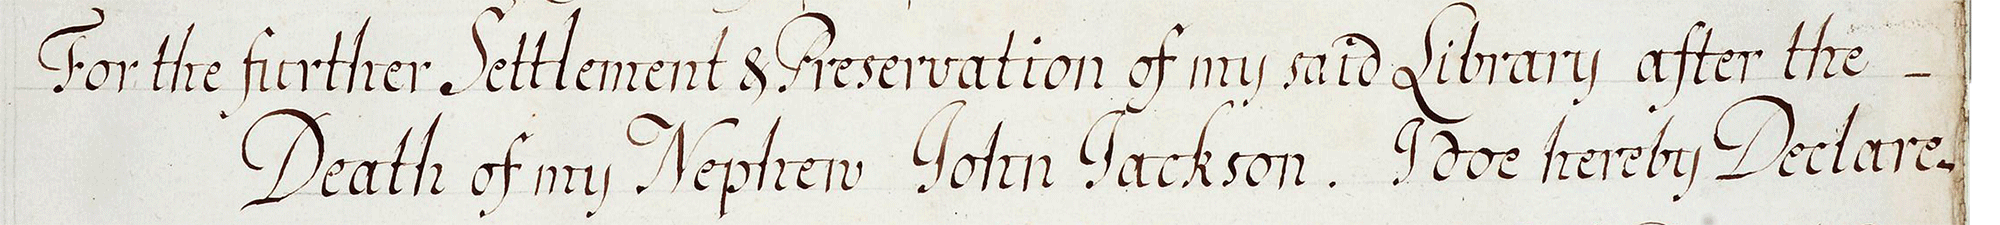 For the further Settlement & Preservation of my said Library after the –
Death of my Nephew John Jackson. I doe hereby Declare.